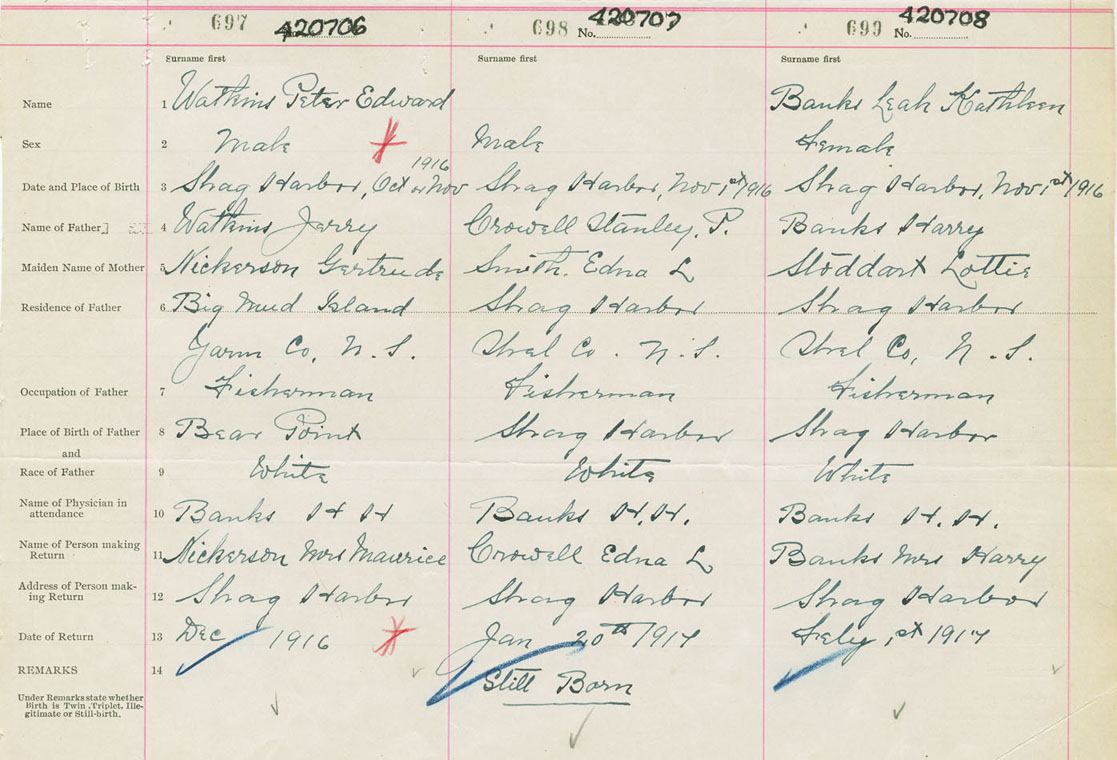 697 420706 698 No. 420707 699 No. 420708
Surname first Surname first Surname first
Name 1 Watkins Peter Edward Banks Leah Kathleen
Sex 2 Male Male Female
1916
Date and Place of Birth 3 Shag Harbor, Oct or Nov Shag Harbor, Nov 1st 1916 Shag Harbor, Nov 1st 1916
Name of Father] 4 Watkins Jerry Crowell Stanley. P. Banks Harry
Maiden Name of Mother 5 Nickerson Gertrude Smith. Edna L Stoddart Lottie
Residence of Father 6 Big Mud Island Shag Harbor Shag Harbor
Yarm Co, N. S. Shel Co. N. S. Shel Co, N. S.
Occupation of Father 7 Fisherman Fisherman Fisherman
Place of Birth of Father 8 Bear Point Shag Harbor Shag Harbor
and
Race of Father 9 White White White
Name of Physician in
attendance 10 Banks H H Banks H. H. Banks H. H.
Name of Person making
Return 11 Nickerson Mrs Maurice Crowell Edna L Banks Mrs Harry
Address of Person mak-
ing Return 12 Shag Harbor Shag Harbor Shag Harbor
Date of Return 13 Dec 1916 Jan 20th 1917 Feby 1st 1917
REMARKS 14 Still Born
Under Remarks state whether
Birth is Twin, Triplet, Ille-
gitimate or Still-birth.